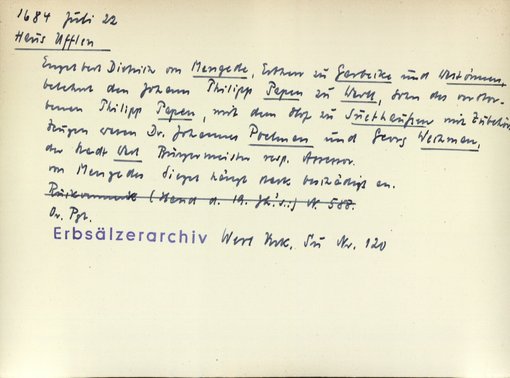 1684 Juli 22
Haus Uffeln
Engelbert Dietrich von Mengede, Erbherr zu Gerbeike und Westönnen,
belehnt den Johann Philipp Papen zu Werll, Sohn des verstor-
benen Philipp Papen, mit dem Hof zu Suetthausen mit Zubehör
Zeugen waren Dr. Johannes Poelman und Georg Westman,
der Stadt Werl Bürgermeister resp. Assessor.
von Mengedes Siegel hängt stark beschädigt an.
Rückvermerk (Hand d. 19. Jh.s.) N 588.
Or. Pgt.
Erbsälzerarchiv Werl Urk. Nr. 120